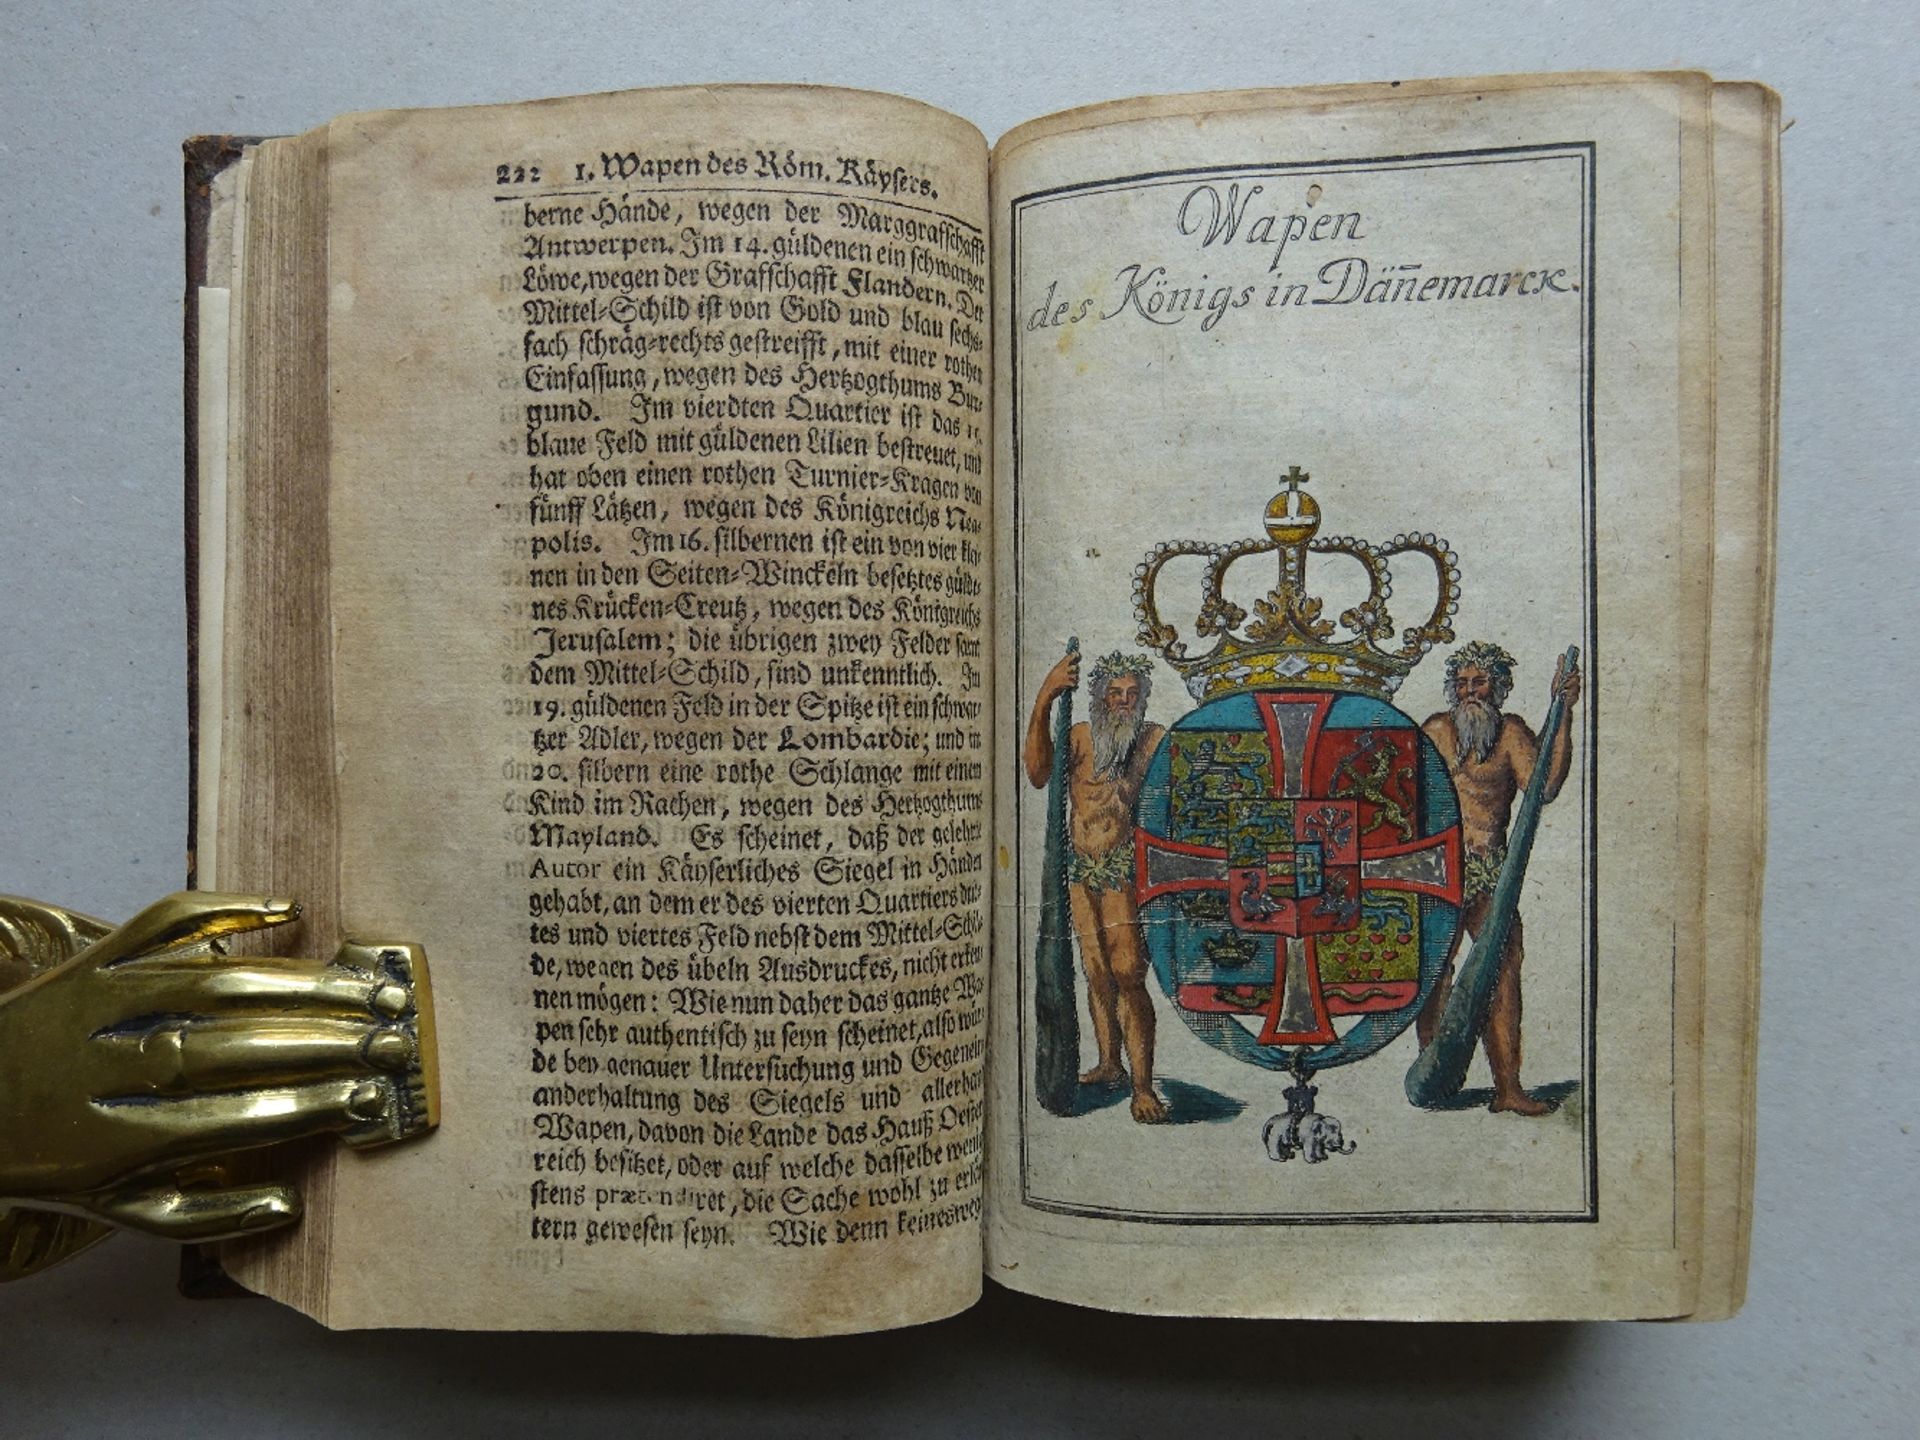 222 1. Wapen des Röm. Käysers.
berne Hände, wegen der Marggrafschafft
Antwerpen. Im 14. güldenen ein schwartzer
Löwe, wegen der Grafschafft Flandern. Der
Mittel-Schild ist von Gold und blau sechs-
fach schräg-rechts gestreifft, mit einer rothen
Einfassung, wegen des Hertzogthums Bur-
gund. Im vierdten Quartier ist das 15.
blaue Feld mit güldenen Lilien bestreuet, und
hat oben einen rothen Turnier-Kragen von
fünff Lätzen, wegen des Königreichs Nea-
polis. Im 16. silbernen ist ein von vier klei-
nen in den Seiten-Winckeln besetztes gülde-
nes Krücken-Creutz, wegen des Königreichs
Jerusalem; die übrigen zwey Felder samt
dem Mittel-Schild, sind unkenntlich. Im
19. güldenen Feld in der Spitze ist ein schwar-
tzer Adler, wegen der Lombardie; und im
20. silbern eine rothe Schlange mit einem
Kind im Rachen, wegen des Hertzogthums
Mayland. Es scheinet, daß der gelehrte
Autor ein Käyserliches Siegel in Händen
gehabt, an dem er des vierten Quartiers drit-
tes und viertes Feld nebst dem Mittel-Schil-
de, wegen des übeln Ausdruckes, nicht erken-
nen mögen: Wie nun daher das gantze Wa-
pen sehr authentisch zu seyn scheinet, also wür-
de bey genauer Untersuchung und Gegenein-
anderhaltung des Siegels und allerhand
Wapen, davon die Lande das Hauß Oester-
reich besitzet, oder auf welche dasselbe wenig-
stens prætendiret, die Sache wohl zu erläu-
tern gewesen seyn. Wie denn keinesweg
Wapen
des Königs in Däñemarck.